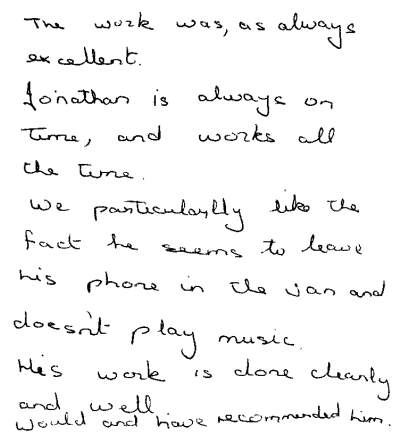 The work was, as always
excellent.
Jonathan is always on
time, and works all
the time.
We particularlly like the
fact he seems to leave
his phone in the van and
doesn't play music.
His work is done cleanly
and well
would and have recommended him.